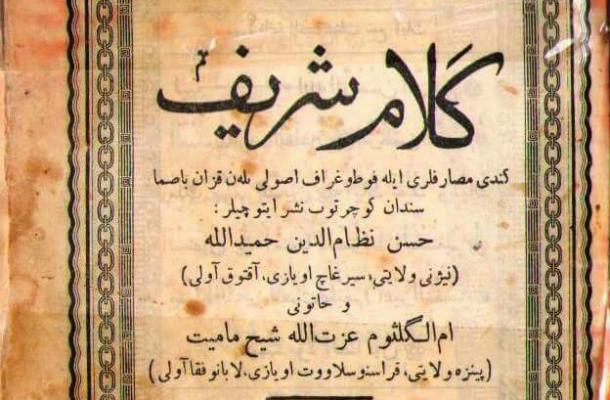 كَلام شريف
كندى مصارفلرى ايله فوطوغراف اصولى بلەن قزان باصما
سندان كوچرتوب نشر ايتوچيلر:
حسن نظام‌الدين حميدالله
(نيژنى ولايتى، سيرغاچ اويازى، آقتوق آولى)
و حاتونى
ام‌الگلثوم عزت‌الله شيح ماميت
(پينزه ولايتى، قراسنوسلاووت اويازى، لابانوفقا آولى)